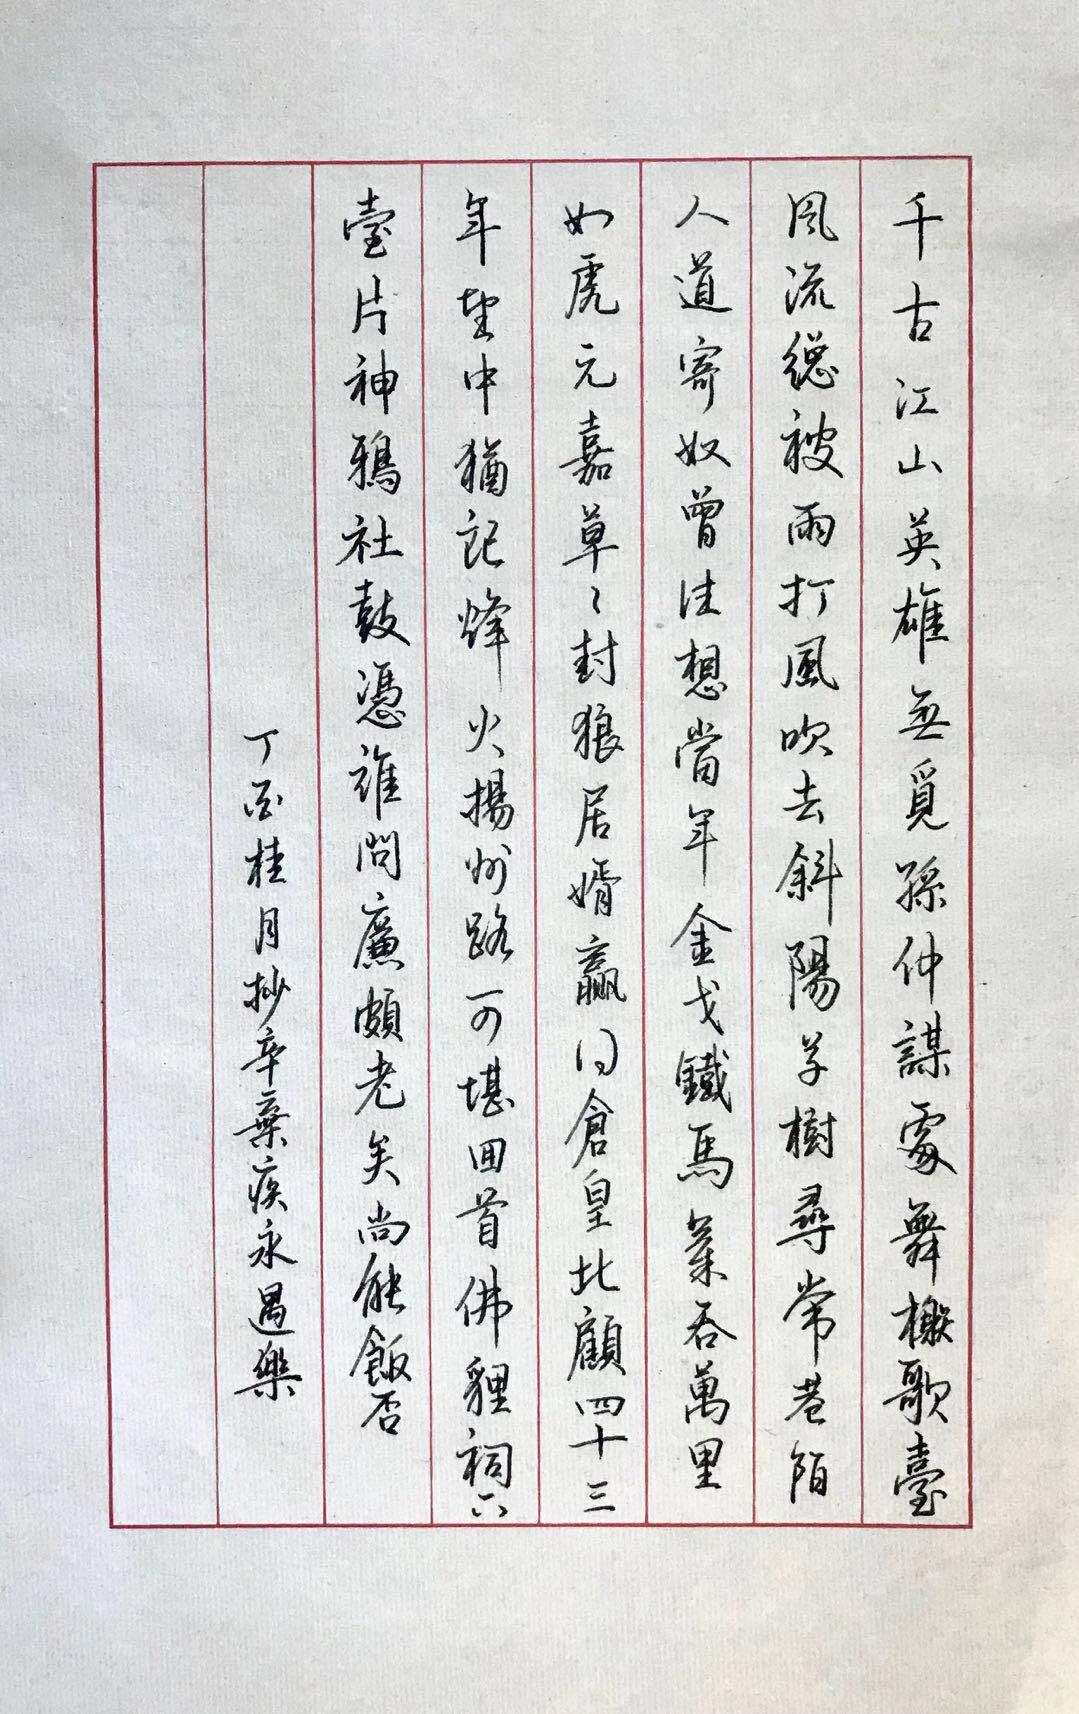 千古江山英雄無覓孫仲謀處舞榭歌臺
風流總被雨打風吹去斜陽草樹尋常巷陌
人道寄奴曾住想當年金戈鐵馬氣吞萬里
如虎元嘉草々封狼居婿贏得倉皇北顧四十三
年望中猶記烽火揚州路可堪回首佛貍祠下
壹片神鴉社鼓憑誰問廉頗老矣尚能飯否
丁酉桂月抄辛棄疾永遇樂